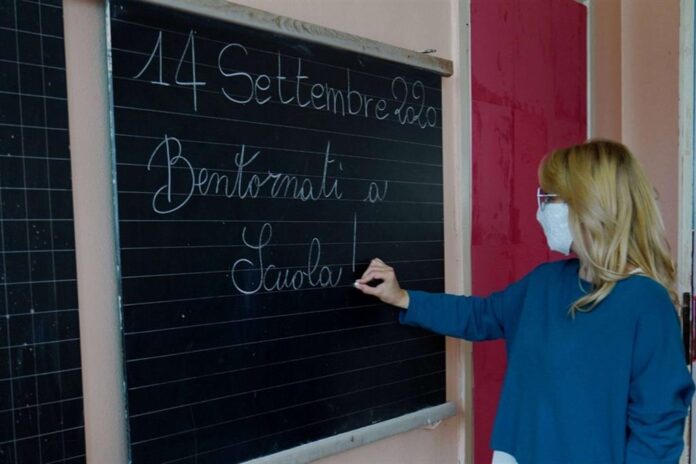 14 Settembre 2020
Bentornati a
Scuola!